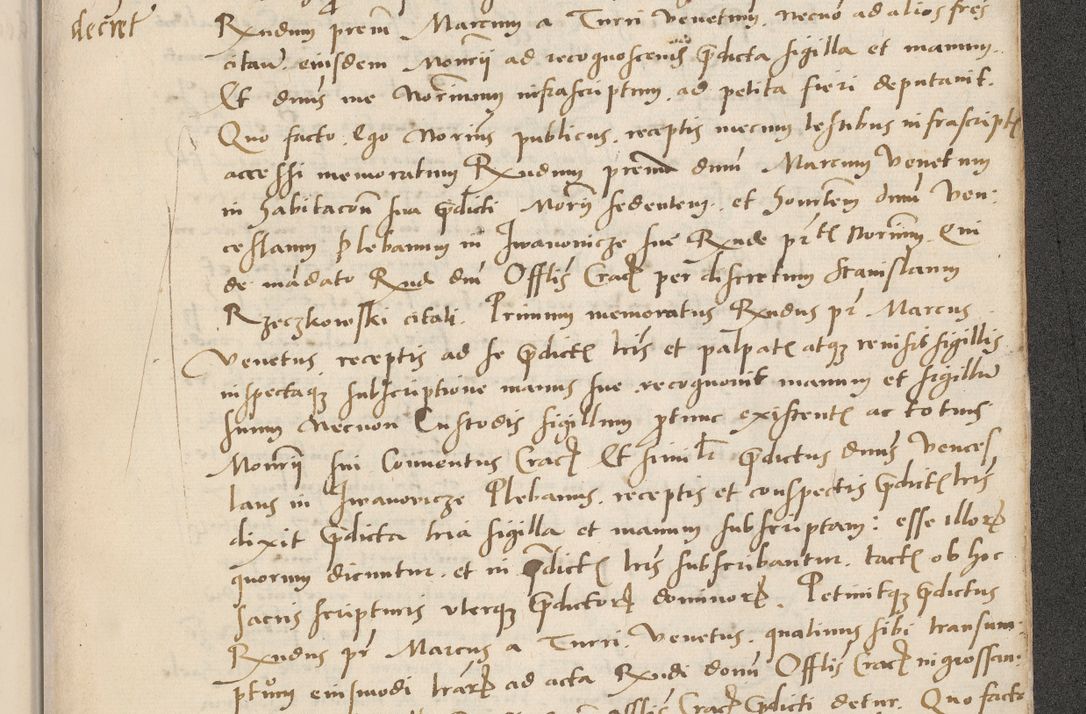 decret
Rxndum prem Marcum a Turri Venetum, necno ad alios fres
citaui eiusdem Monrii ad recognoscenda prdicta sigilla et manum.
Et dnus me Norium infrascriptum, ad petita fieri deputauit.
Quo facto, Ego Norius publicus, receptis mecum testibus infrascript
accessi memoratum Rxndum prem dnm Marcum Venetum
in habitacon sua prdicti Morii sedentem, et honstem dnm Ven:
ceslaum Plebanum in Jwanowicze siue Rxnde Norium, Qui
de mädato Rxnd dni Offlis Crac per discretum Stanislaum
Rzeczkowski citati. Primum memoratus Rxndus pr Marcus
Venetus receptis ad se prdict lris et palpat atqz reuisis sigillis
inspectaqz subscriptione manus sue, recognouit manum et sigillu
suum Necnon Custodis sigillum ptunc existent ac totius
Monrii sui Conuentus Crac Et similr prdictus dnus Vences
laus in Jwanowicze Plebanus, receptis et conspectis prdict lris
dixit prdicta tria sigilla et manum subscriptam: esse illor
quorum dicuntur, et in prdict lris subscribantur, tact ob hoc
sacris scripturis vterqz prdictor dominor. Petiuitqz prdictus
Rxndus pr Marcus a Turri Venetus, quatinus sibi transum:
ptum eiusmodi lrar ad acta Rxndi domi Offlis Crac ingrossan:
Crac prdicti detur. Quo facto